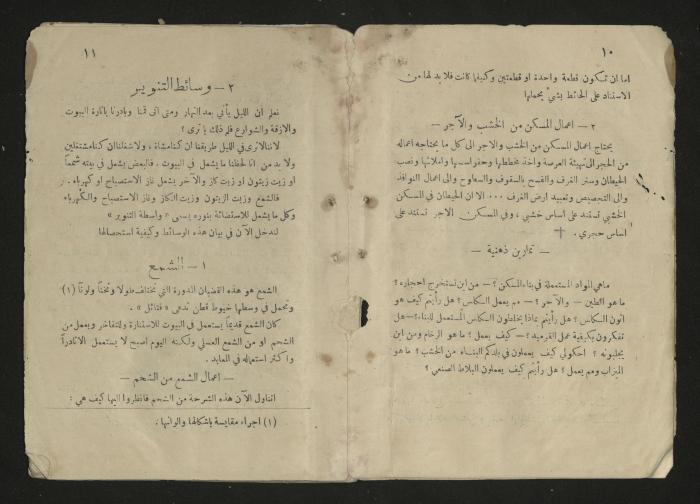 ١٠
اما ان تكون قطعة واحدة او قطعتين وكيفما كانت فلا بد لها من
الاستناد على الحائط بشيء يحملها
٢ – اعمال المسكن من الخشب والآجر –
يحتاج اعمال المسكن من الخشب والاجر الى كل ما يحتاجه اعماله
من الحجر الى تهيئة العرصة واخذ مخططها وحفر اسسها واملائها ونصب
الحيطان وستر الغرف والفسح بالسقوف والسطوح والى اعمال النوافذ
والى التجصيص وتعبيد ارض الغرف ... الا ان الحيطان في المسكن
الخشبي تستند على اساس خشبي، وفي المسكن الآجر تستند على
اساس حجري .
– تمارين ذهنية –
ماهي المواد المستعملة في بناء المسكن؟ – من اين نستخرج احجاره؟
ما هو الطين – والآجر؟ – مم يعمل الكلس؟ هل رأيتم كيف هو
اتون الكلس؟ هل رأيتم بماذا يخلطون الكلس المستعمل للبناء؟ – هل
تفكرون بكيفية عمل القرميد؟ – كيف يعمل؟ ما هو الرخام ومن اين
يجلبونه؟ احكولي كيف يعملون في بلدكم البناء من الخشب؟ ما هو
الميزاب ومم يعمل؟ هل رأيتم كيف يعملون البلاط الصنعي؟
١١
٢ – وسائط التنوير
نعلم ان الليل يأتي بعد النهار ومتى اتى قمنا وبادرنا بانارة البيوت
والازقة والشوارع فلم ذلك يا ترى؟
لاننا لا نرى في الليل طريقنا ان كنا مشاة، ولا شغلنا ان كنا مشتغلين
ولا بد من اننا لحظنا ما يشعل في البيوت . فالبعض يشعل في بيته شمعاً
او زيت زيتون او زيت كاز والآخر يشعل غاز الاستصباح او كهرباء .
فالشمع وزيت الزيتون وزيت الكاز وغاز الاستصباح والكهرباء
وكل ما يشعل للاستضائة بنوره يسمى « واسطة التنوير »
لندخل الآن في بيان هذه الوسائط وكيفية استحصالها
١ – الشمع
الشمع هو هذه القضبان المدورة التي تختلف طولا وثخناً ولوناً (١)
وتحمل في وسطها خيوط قطن تدعى « فتائل » .
كان الشمع قديماً يستعمل في البيوت للاستنارة وللتفاخر ويعمل من
الشحم او من الشمع العسلي ولكنه اليوم اصبح لا يستعمل الا نادراً
واكثر استعماله في المعابد .
– اعمال الشمع من الشحم –
اتناول الآن هذه الشرحة من الشحم فانظروا اليها كيف هي :
(١) اجراء مقايسة باشكالها والوانها .